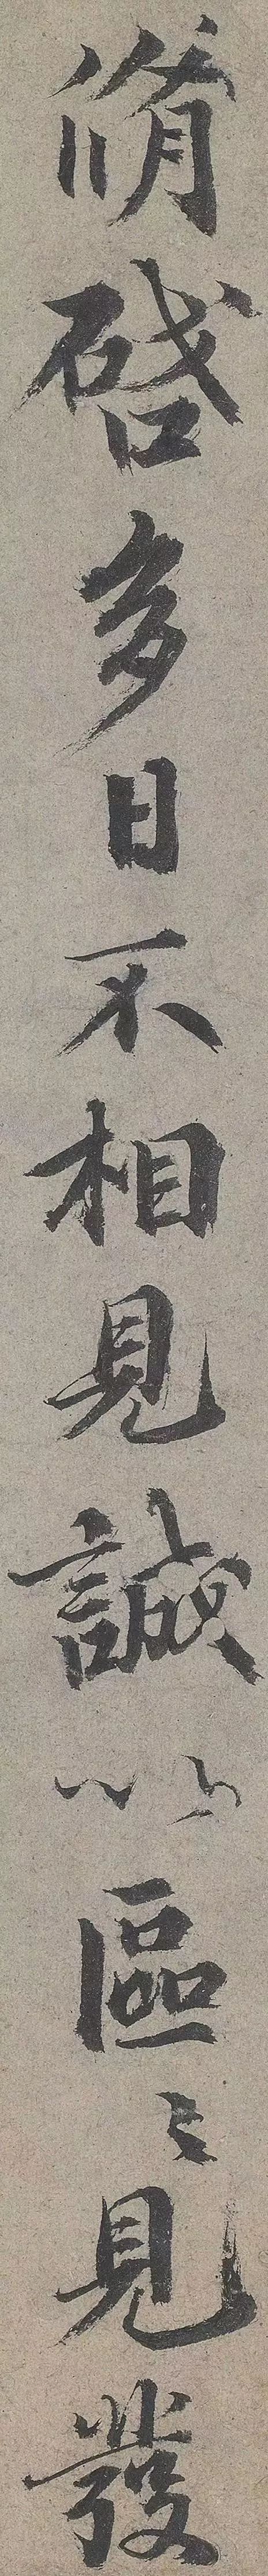 脩啓多日不相見誠以區〻見發